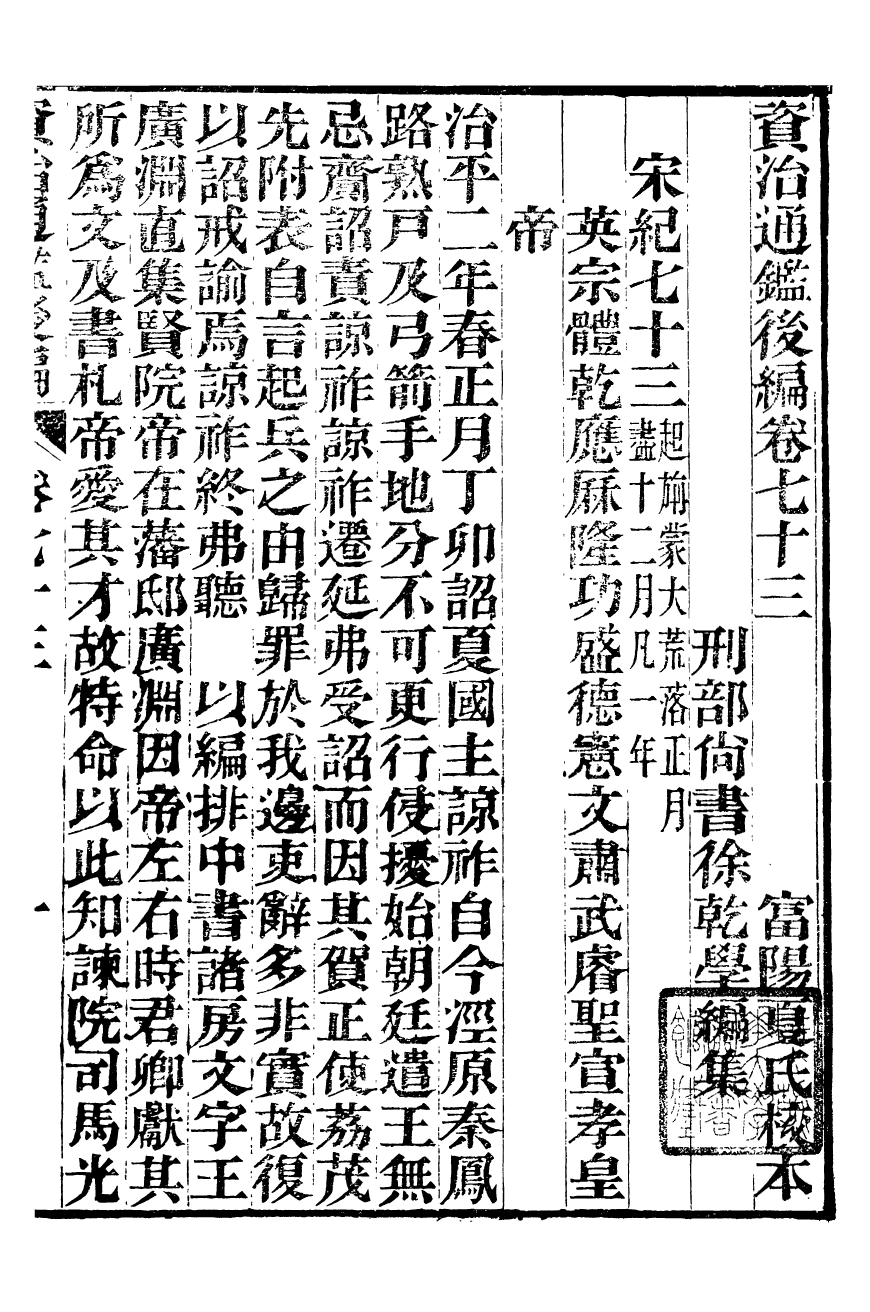 資治通鑑後編卷七十三　富陽夏氏校本
刑部尚書徐乾學編集
宋紀七十三起旃蒙大荒落正月盡十二月凡一年
英宗體乾應厤隆功盛德憲文肅武睿聖宣孝皇
帝
治平二年春正月丁卯詔夏國主諒祚自今涇原秦鳳
路熟戸及弓箭手地分不可更行侵擾始朝廷遣王無
忌齎詔責諒祚諒祚遷延弗受詔而因其賀正使荔茂
先附表自言起兵之由歸罪於我邊吏辭多非實故復
以詔戒諭焉諒祚終弗聽　以編排中書諸房文字王
廣淵直集賢院帝在藩邸廣淵因帝左右時君卿獻其
所爲文及書札帝愛其才故特命以此知諫院司馬光
資治通鑑後編　卷七十三　一